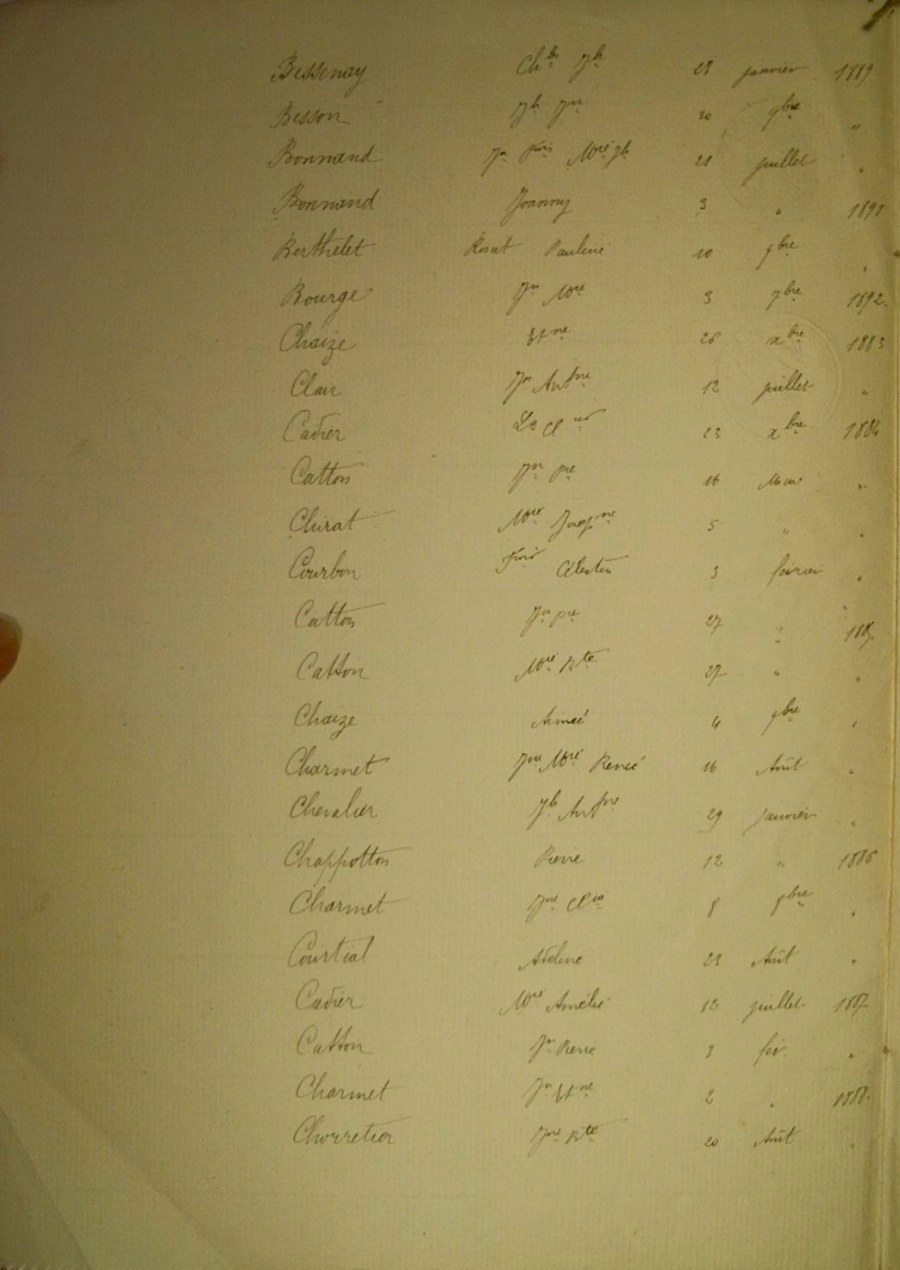 Bessenay Ch^les J^h 28 janvier 1889
Besson J^h J^ne 20 9^bre "
Bonnand J^n F^cois M^rie J^h 21 juillet "
Bonnand Joanny 3 " 1891
Berthelet Rosat Pauline 10 9^bre "
Bourge J^n M^rie 3 7^bre 1892
Chaize Et^ne 28 x^bre 1883
Clair J^n Ant^ne 12 juillet "
Cadier 23 x^bre 1884
Catton J^n P^re 16 Mars "
Chirat M^rie Josep^ne 5 " "
Courbon F^cois Célestin 3 février "
Catton J^n P^re 27 "
Catton M^rie B^te 27 " "
Chaize Aimée 4 9^bre "
Charmet J^ne M^rie Renée 16 Août "
Chevalier J^h Ant^ne 29 janvier "
Chappotton Pierre 12 " 1886
Charmet J^ne 8 9^bre "
Courtial 23 Août "
Cadier M^rie Amélie 12 juillet 1887
Catton J^n Pierre 3 fév. "
Charmet J^n Et^ne 2 " 1888
Chorretier J^ne B^te 20 Août "